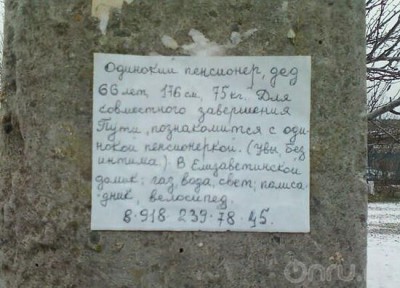 Одинокий пенсионер, дед
66 лет, 176 см, 75 кг. Для
совместного завершения
Пути, познакомится с оди-
нокой пенсионеркой. (Увы, без
интима.) В Елизаветинской
домик: газ, вода, свет; полиса-
дник, велосипед.
8-918-239-78-45.
Onru.ru